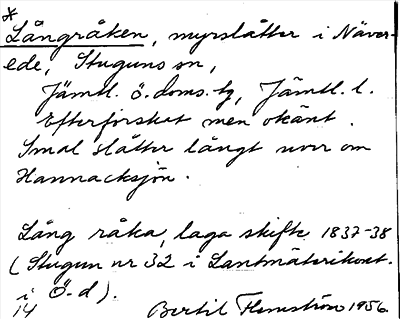 *
Långråken, myrslåtter i Näver-
ede, Stuguns sn,
Jämtl. ö. doms. tg, Jämtl. l.
Efterforskat men okänt.
Smal slåtter långt norr om
Hannacksjön.
Lång råka, laga skifte 1837-38
(Stugun nr 32 i Lantmäterikont.
i Ö-d).
14 Bertil Flemström 1956.